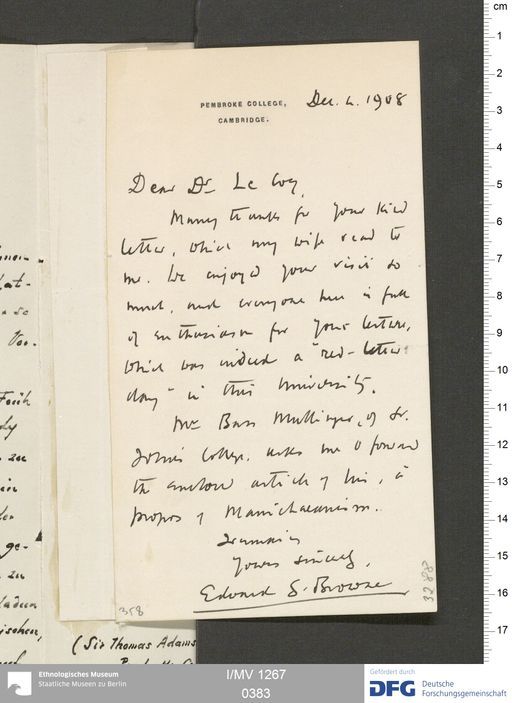 PEMBROKE COLLEGE,
CAMBRIDGE.
Dec. 4. 1908
Dear Dr Le Coq,
Many thanks for your kind
letter, which my wife read to
me. We enjoyed your visit so
much, and everyone here is full
of enthusiasm for your lecture,
which was indeed a "red-letter
day" in this University.
Mr Bass Mullinger, of St.
John's College, asks me to forward
the enclosed article of his, à
propos of Manichaeanism.
I remain
Yours sincerely,
Edward G. Browne
358
3288
(Sir Thomas Adams
noi-
Voo-
zu
ge-
zu
cm
1
2
3
4
5
6
7
8
9
10
11
12
13
14
15
16
17
Ethnologisches Museum
Staatliche Museen zu Berlin
I/MV 1267
0383
Gefördert durch
DFG
Deutsche
Forschungsgemeinschaft